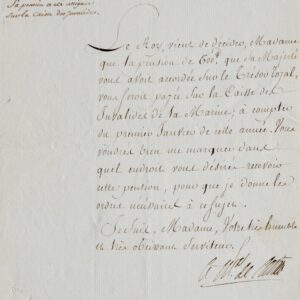 Sa pension a été assignée
Sur la Caisse des Invalides.
Le Roy, vient de décider, Madame
que la pension de 600# que Sa Majesté
vous avoit accordée sur le Trésor royal,
vous seroit payée sur la Caisse des
Invalides de la Marine; à compter
du premier Janvier de cette année. Vous
voudrés bien me marquer dans
quel endroit vous désirés recevoir
cette pension, pour que je donne les
ordres nécessaires à ce sujet.
Je suis, Madame, Votre très humble
et très obéissant Serviteur.
le M. de